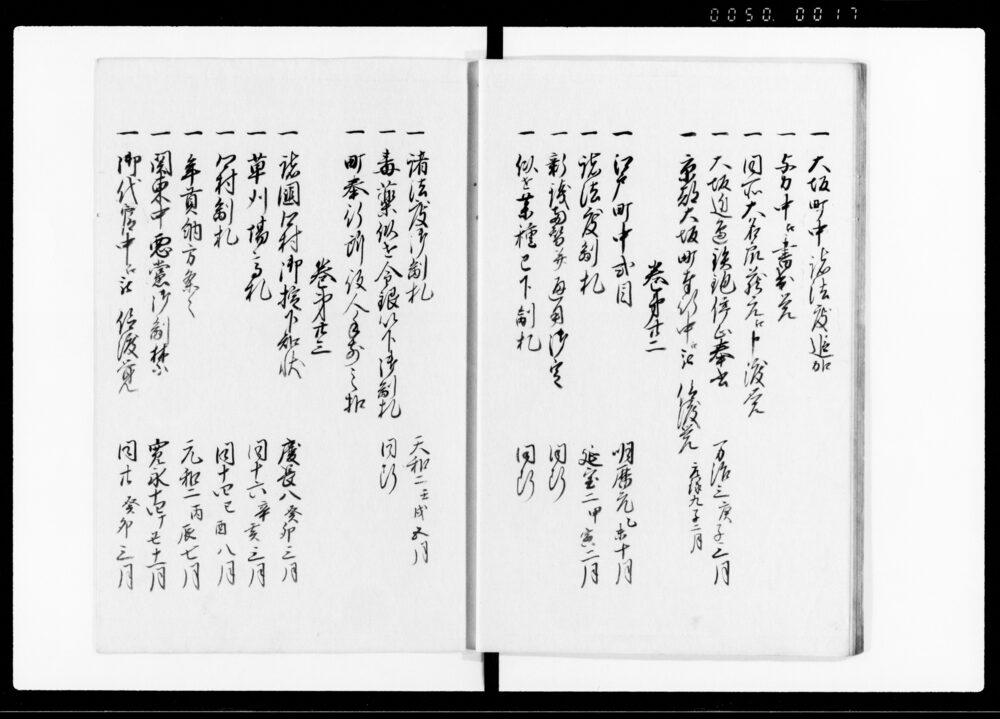 0050. 0017
一 大坂町中諸法度追加
一 与力中江書出覚
一 同所大名屋蔵元江申渡覚
一 大坂近辺鉄炮停止奉書 万治三庚子三月
一 京都大坂町奉行中江 仰渡覚 元禄九子二月
巻第廿二
一 江戸町中式目 明暦元乙未十月
一 諸法度制札 延宝二甲寅二月
一 新銭売買并通用御定 同断
一 似せ薬種已下制札 同断
一 諸法度御制札 天和二壬戌五月
一 毒薬似せ金銀以下御制札 同断
一 町奉行所役人手前之
巻第廿三
一 諸国郷村御掟下知状 慶長八癸卯三月
一 草刈場高札 同十六辛亥三月
一 郷村制札 同十四己酉八月
一 年貢納方条々 元和二丙辰七月
一 関東中悪党御制禁 寛永十四丁丑十一月
一 御代官中江被 仰渡覚 同 癸卯三月